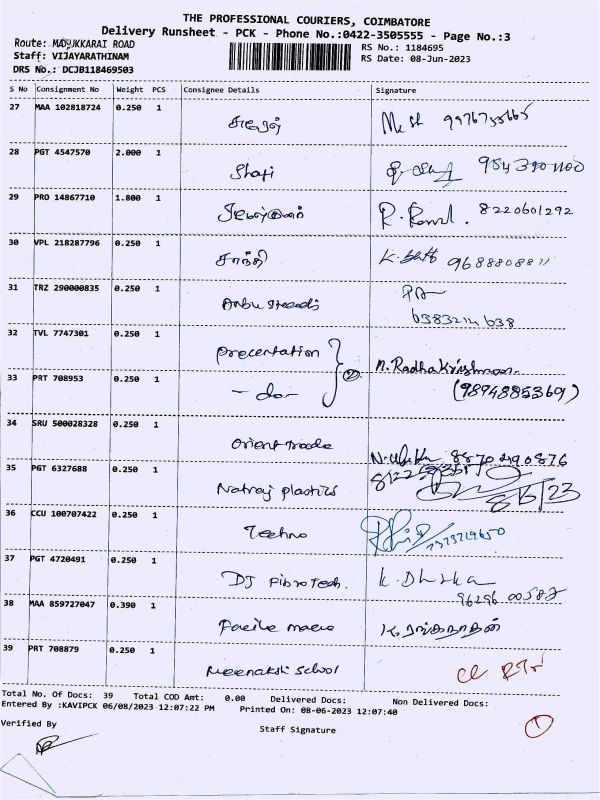 THE PROFESSIONAL COURIERS, COIMBATORE
Delivery Runsheet - PCK - Phone No.:0422-3505555 - Page No.:3
Route: MADUKKARAI ROAD
RS No.: 1184695
Staff: VIJAYARATHINAM
RS Date: 08-Jun-2023
DRS No.: DCJB118469503
S No Consignment No Weight PCS Consignee Details Signature
27 MAA 102818724 0.250 1
28 PGT 4547570 2.000 1 Shafi
29 PRO 14867710 1.800 1 R. 8220601292
30 VPL 218287796 0.250 1 சாந்தி K. 9688808811
31 TRZ 290000835 0.250 1 Anbu
6383214638
32 TVL 7747301 0.250 1 precentation n. Radhakrishnan
33 PRT 708953 0.250 1 -do- (9894885369)
34 SRU 500028328 0.250 1 Orient trade
35 PGT 6327688 0.250 1 Natraj plastics 8/6/23
36 CCU 100707422 0.250 1 Techno
37 PGT 4720491 0.250 1 DJ Fibrotech. K.
38 MAA 859727047 0.390 1 K. ரங்கநாதன்
39 PRT 708879 0.250 1 meenakshi school
Total No. Of Docs: 39 Total COD Amt: 0.00 Delivered Docs: Non Delivered Docs:
Entered By :KAVIPCK 06/08/2023 12:07:22 PM Printed On: 08-06-2023 12:07:40
1
Verified By
Staff Signature